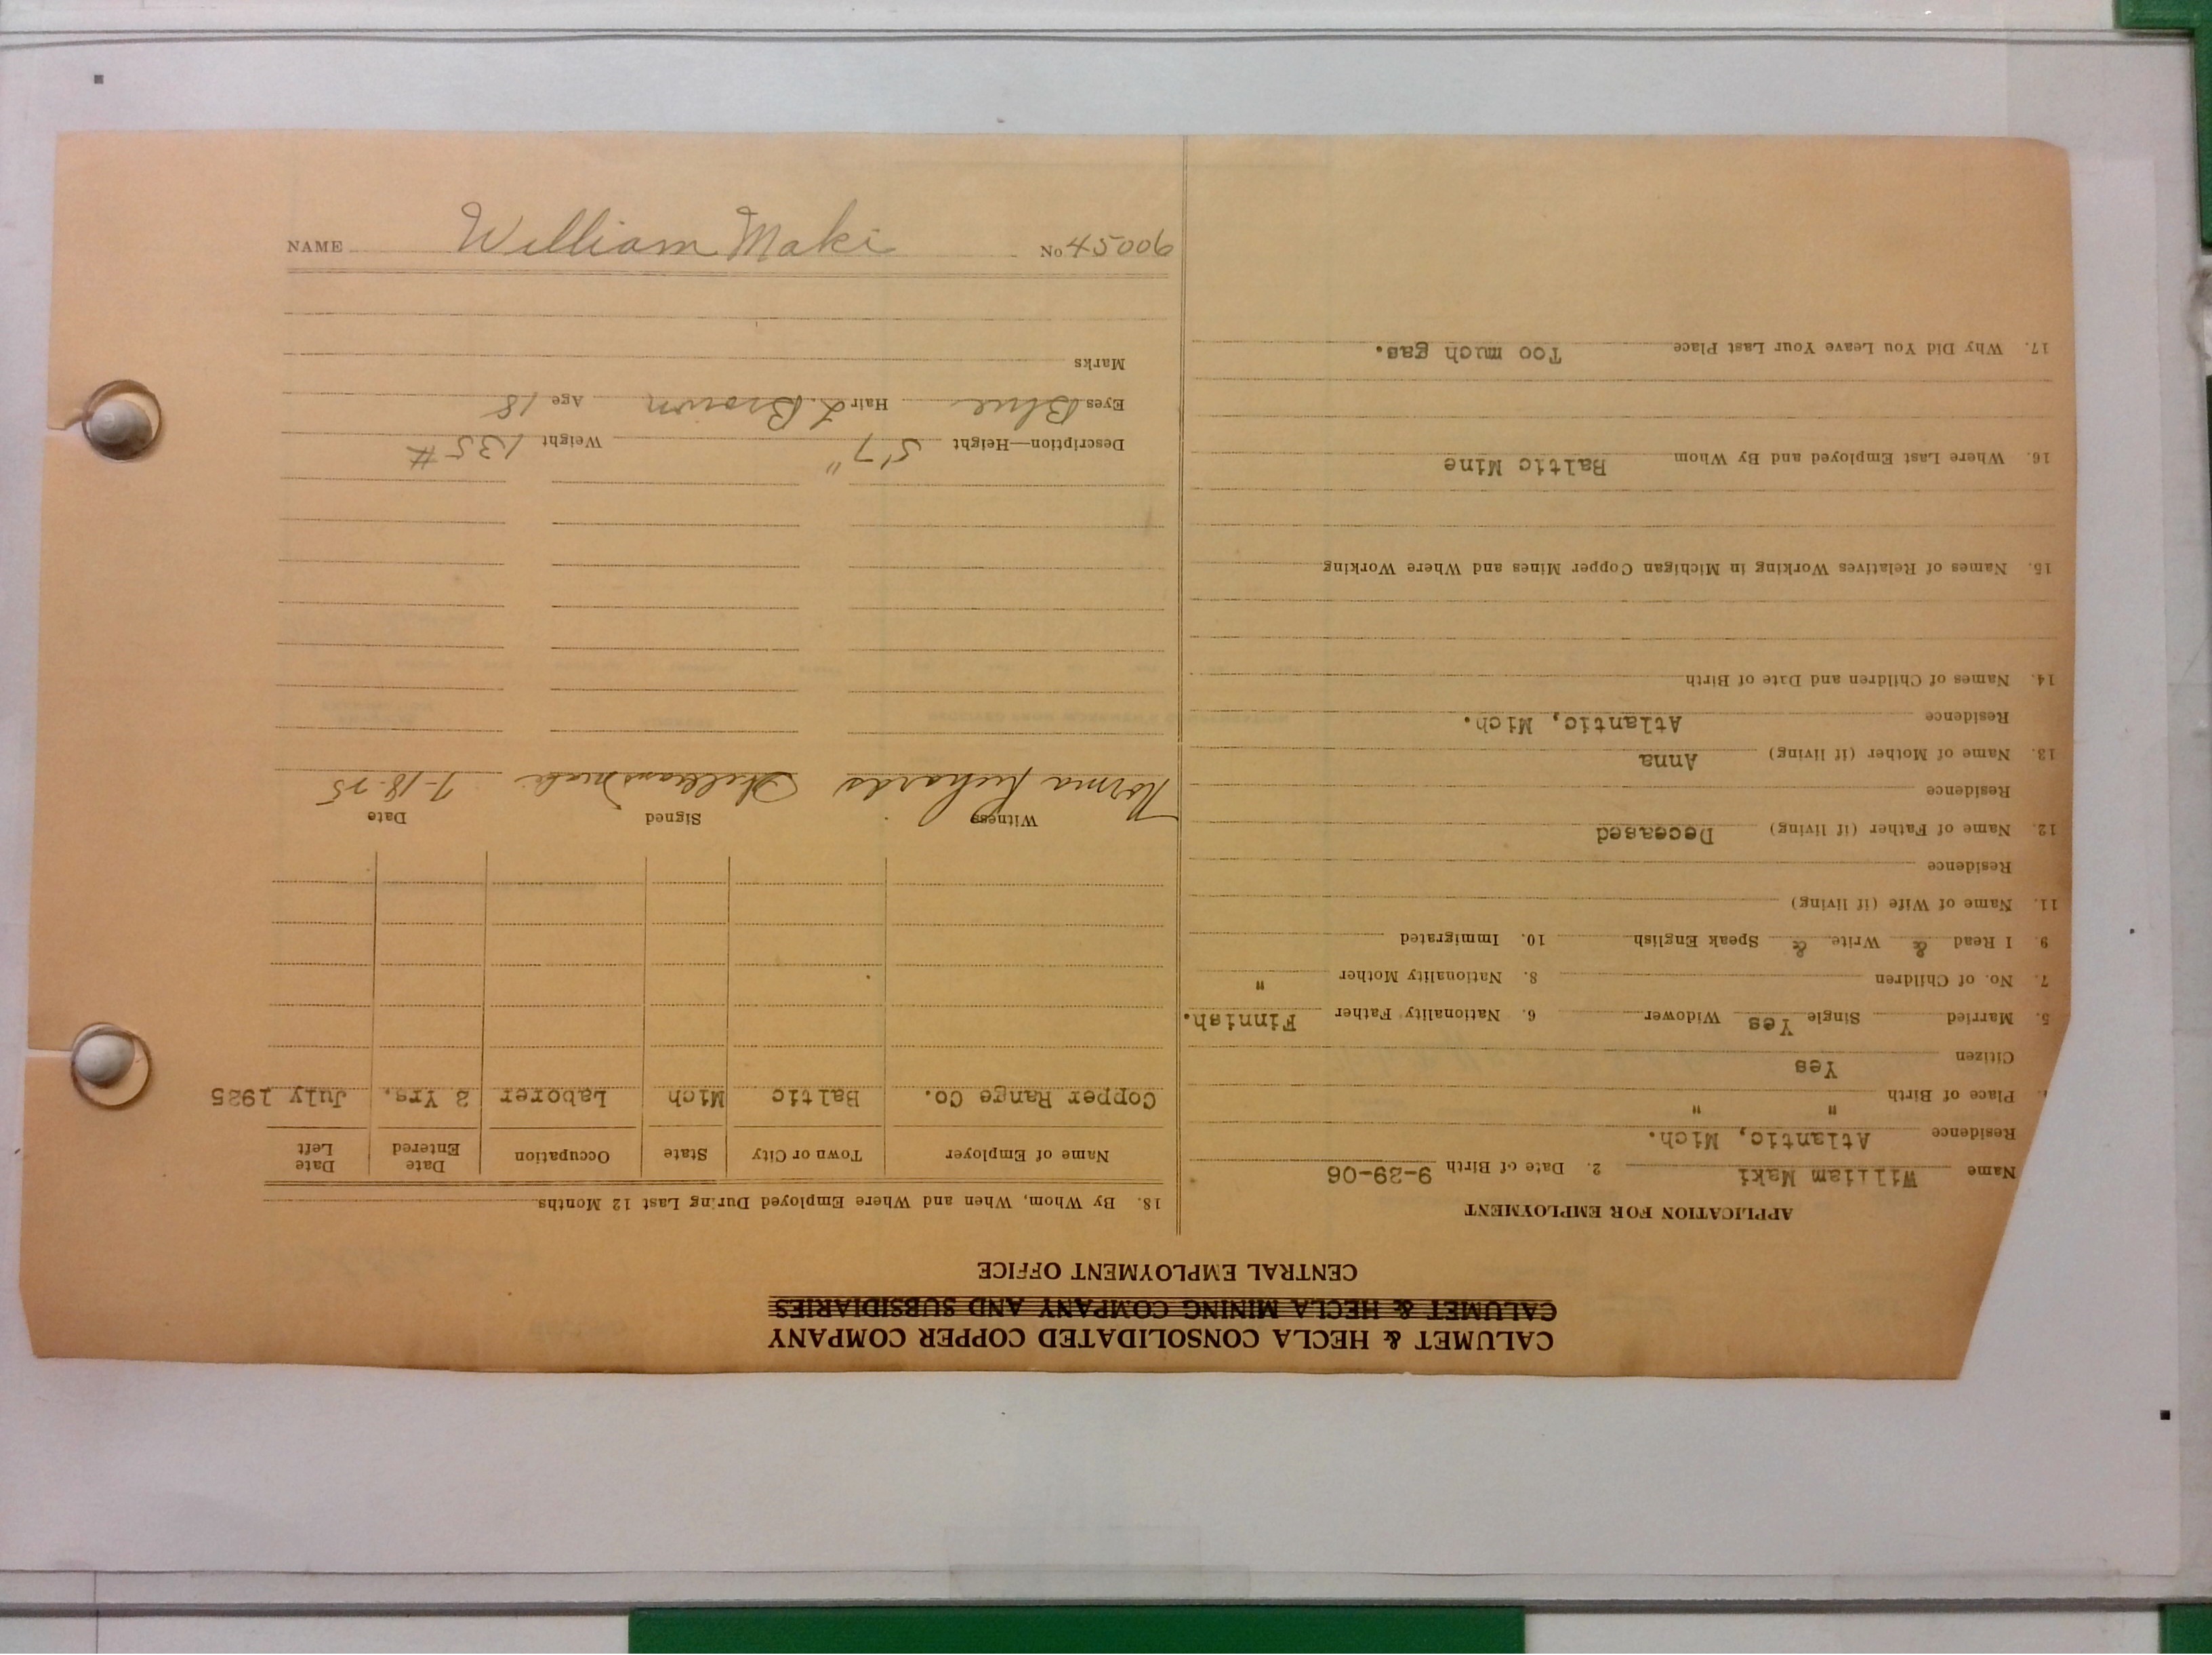 CALUMET & HECLA CONSOLIDATED COPPER COMPANY
CALUMET & HECLA MINING COMPANY AND SUBSIDIARIES
CENTRAL EMPLOYMENT OFFICE
APPLICATION FOR EMPLOYMENT
Name William Maki 2. Date of Birth 9-29-06
Residence Atlantic, Mich.
Place of Birth " "
Citizen Yes
5. Married Single Yes Widower 6. Nationality Father Finnish.
7. No. of Children 8. Nationality Mother "
9. I Read & Write & Speak English 10. Immigrated
11. Name of Wife (if living)
Residence
12. Name of Father (if living) Deceased
Residence
13. Name of Mother (if living) Anna
Residence Atlantic, Mich.
14. Names of Children and Date of Birth
15. Names of Relatives Working in Michigan Copper Mines and Where Working
16. Where Last Employed and By Whom Baltic Mine
17. Why Did You Leave Your Last Place Too much gas.
18. By Whom, When and Where Employed During Last 12 Months
Name of Employer Town or City State Occupation Date Entered Date Left
Copper Range Co. Baltic Mich Laborer 2 Yrs. July 1925
Witness Signed Date
Norma Richards William Maki 7-18-25
Description—Height 5'7" Weight 135 #
Eyes Blue Hair L Brown Age 18
Marks
NAME William Maki No 45006